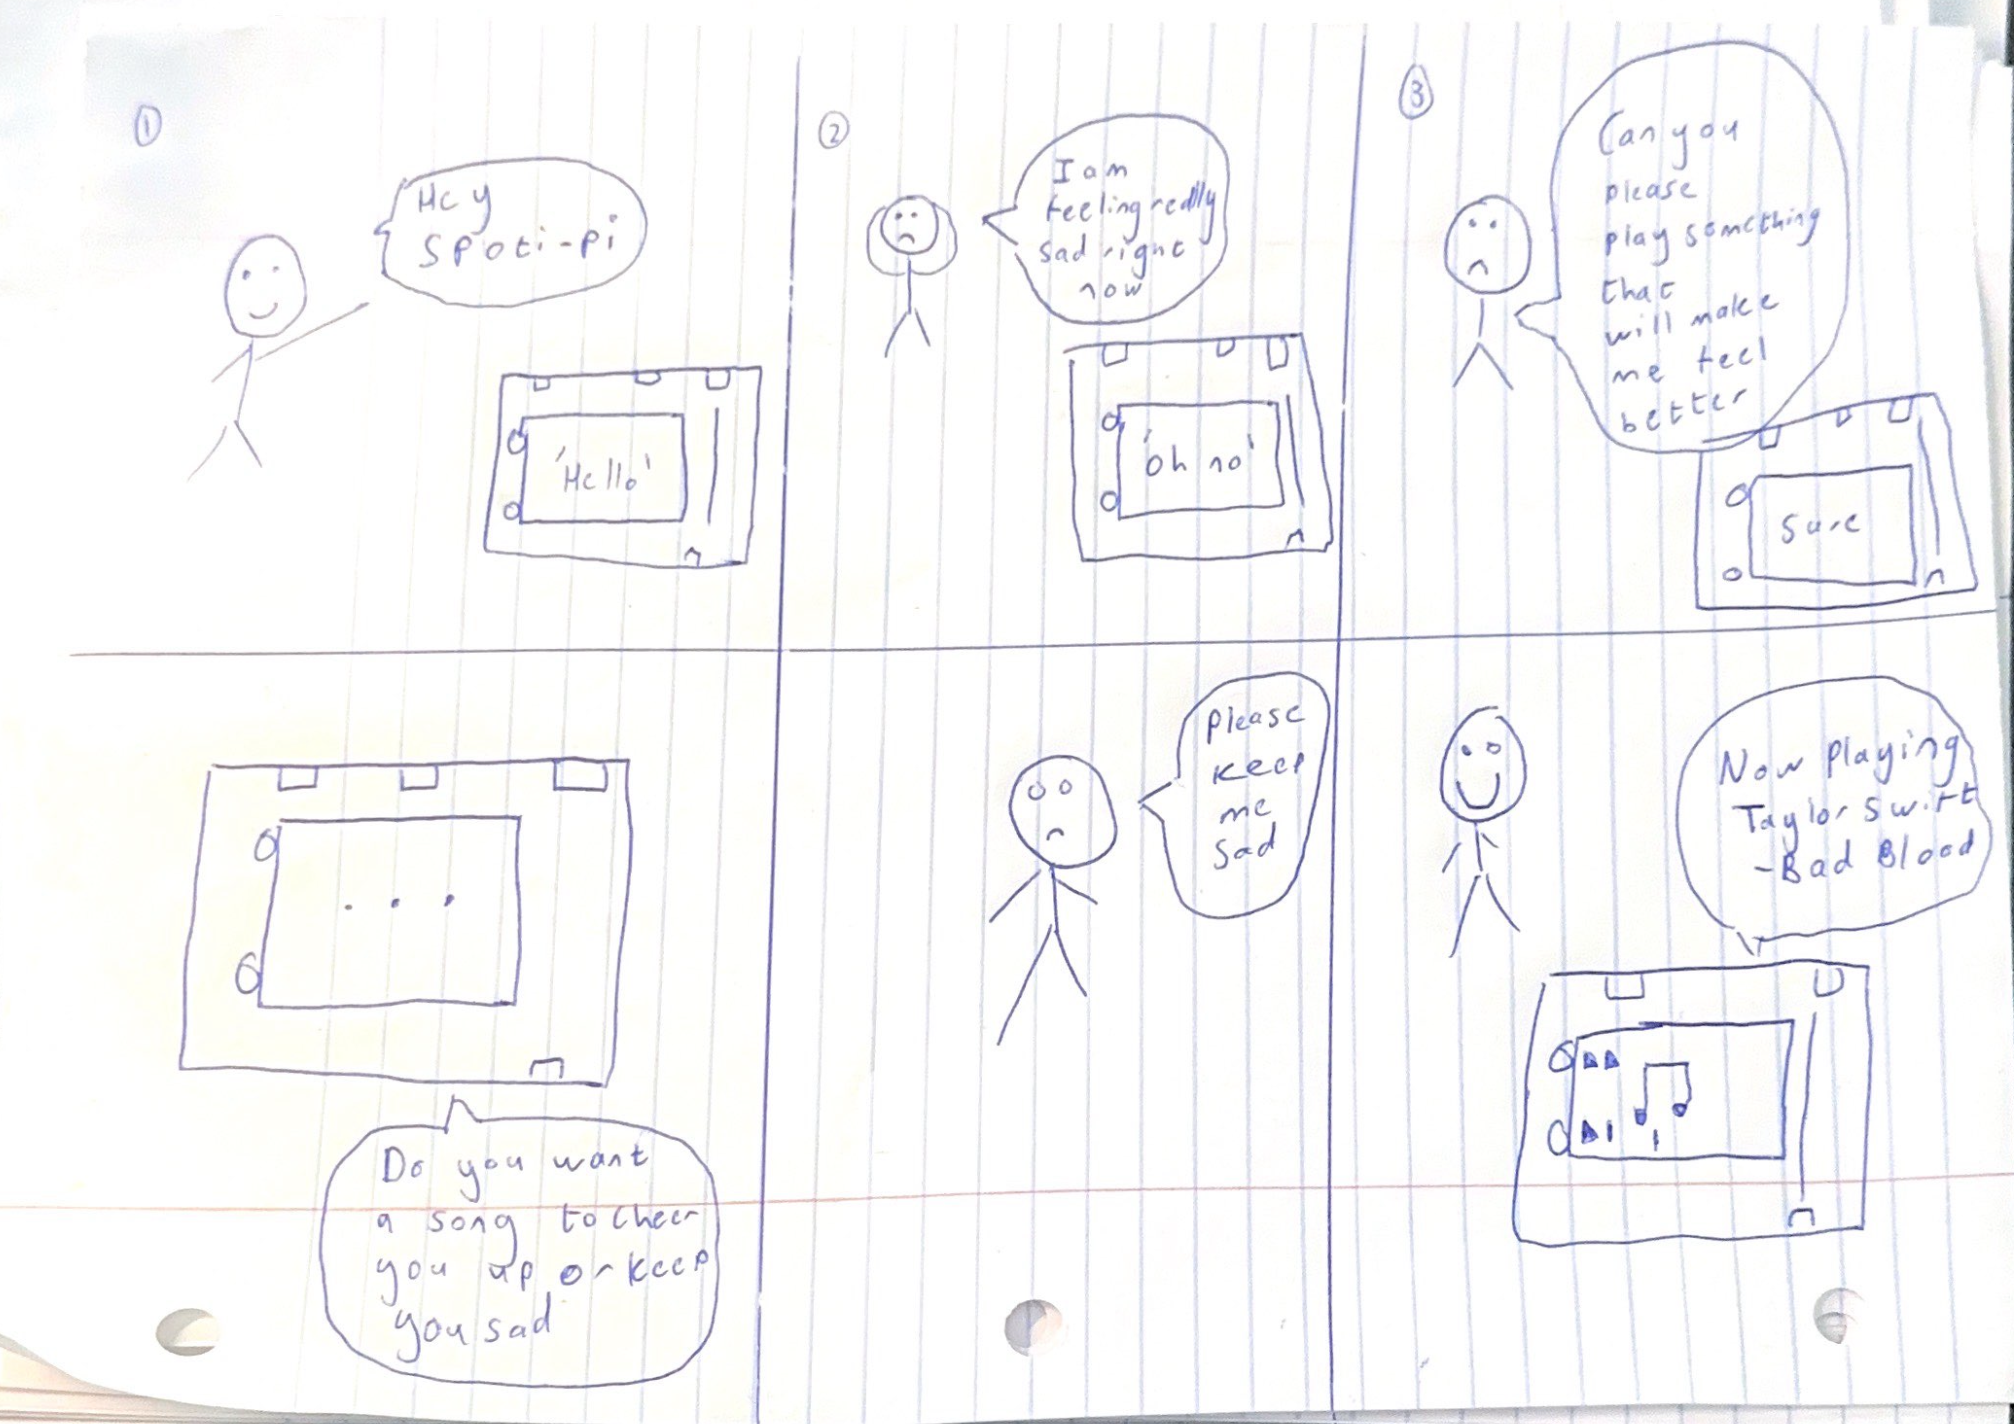 ①
Hey
Spoti-pi
'Hello'
②
I am
feeling really
sad right
now
'oh no'
③
Can you
please
play something
that
will make
me feel
better
Sure
...
Do you want
a song to cheer
you up or keep
you sad
Please
keep
me
sad
Now Playing
Taylor Swift
-Bad Blood